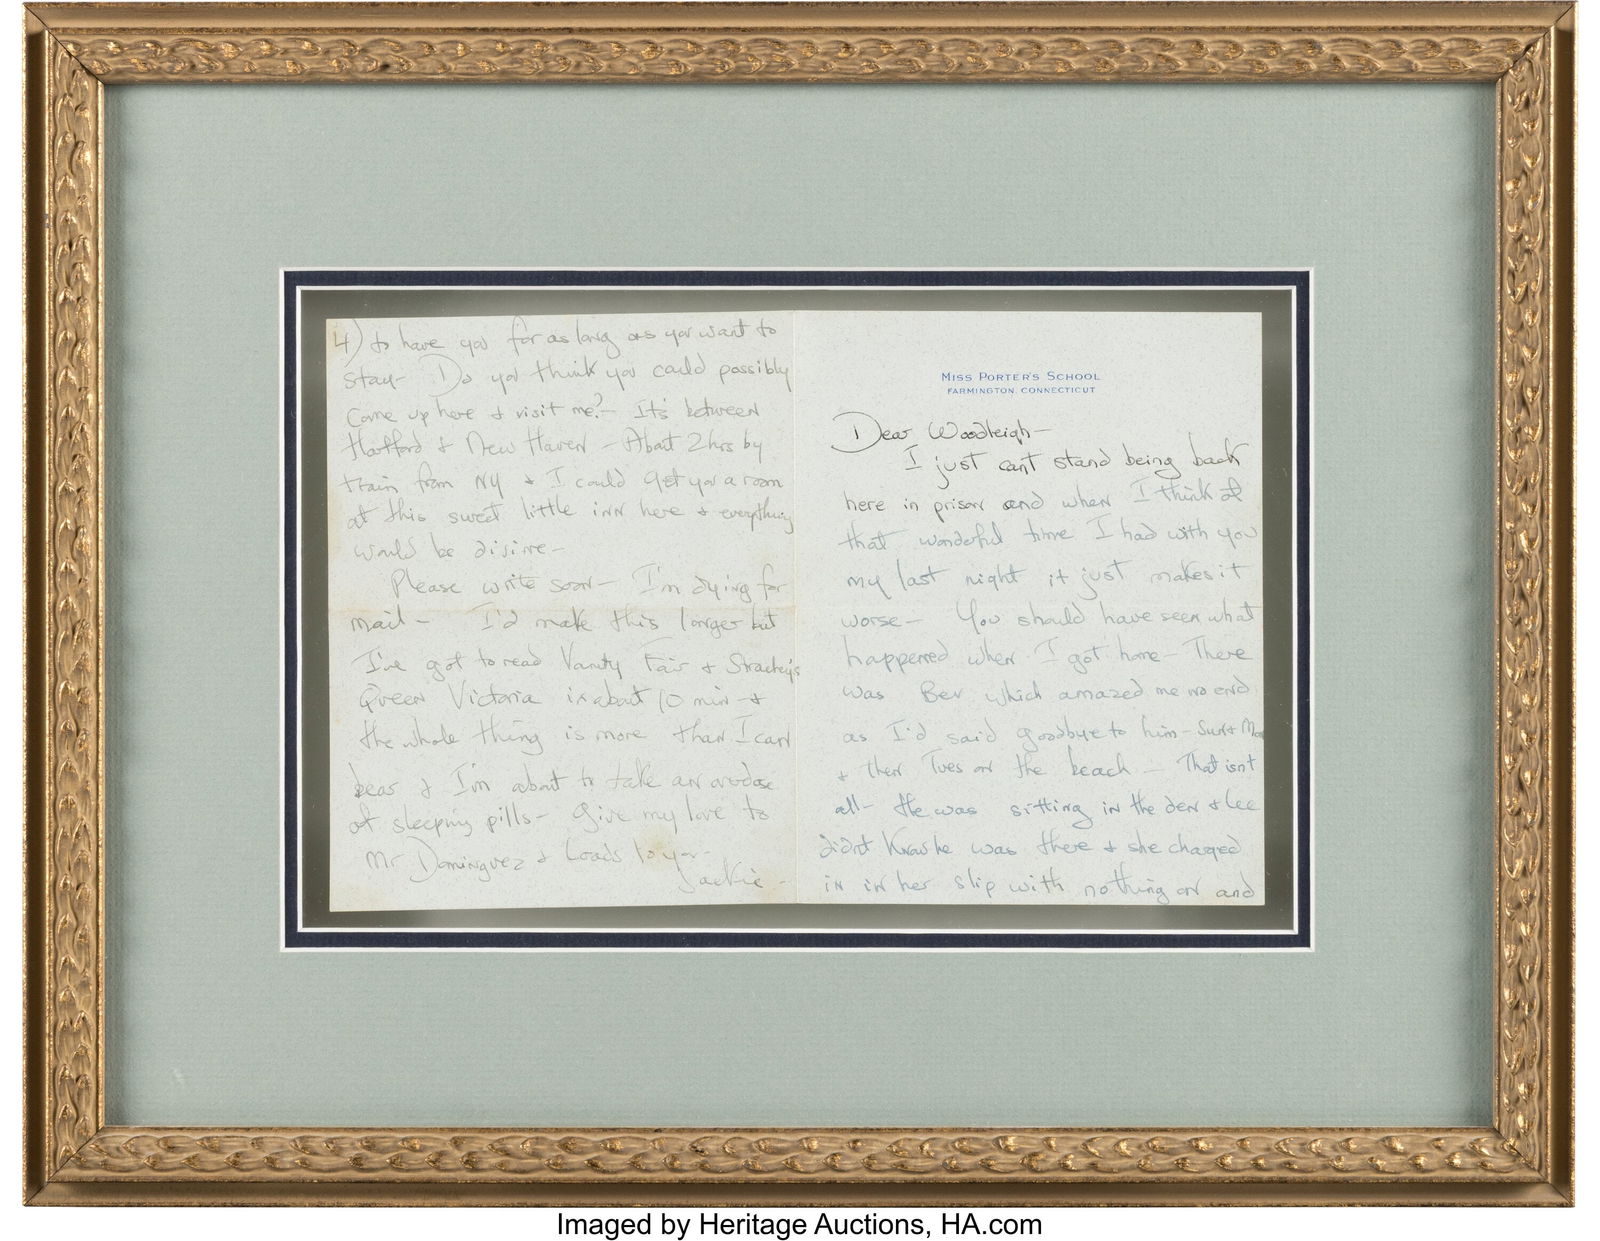 4) to have you for as long as you want to
stay- Do you think you could possibly
come up here & visit me?- Its between
Hartford & New Haven - About 2 hrs by
train from NY & I could get you a room
at this sweet little inn here & everything
would be divine-
Please write soon- I'm dying for
mail- I'd make this longer but
I've got to read Vanity Fair & Strachey's
Queen Victoria in about 10 min - &
the whole thing is more than I can
bear & I'm about to take an overdose
of sleeping pills- Give my love to
Mr Dominguez & Loads to you-
Jackie-
MISS PORTER'S SCHOOL
FARMINGTON, CONNECTICUT
Dear Woodleigh-
I just cant stand being back
here in prison and when I think of
that wonderful time I had with you
my last night it just makes it
worse- You should have seen what
happened when I got home- There
was Bev which amazed me no end
as I'd said goodbye to him- Sun & Mon
& then Tues on the beach - That isn't
all- He was sitting in the den & Lee
didnt Know he was there & she charged
in in her slip with nothing on and
Imaged by Heritage Auctions, HA.com